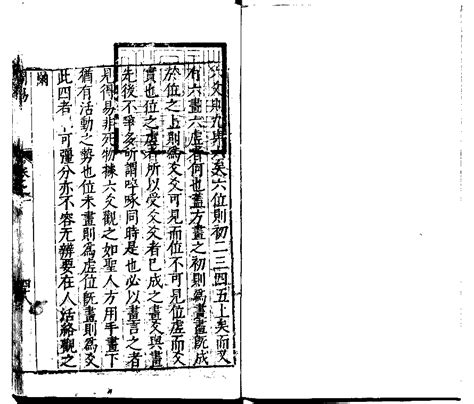 六爻則九與六矣六位則初二三四五上矣而又
有六畫六虛者何也蓋方畫之初則為畫畫既成
於位之上則為爻爻可見而位不可見位虛而爻
實也位之虛者所以受爻爻者已成之畫爻與畫
先後不爭多所謂啐啄同時是也必以畫言之者
見得易非死物據六爻觀之如聖人方用手畫下
猶有活動之勢也位未畫則為虛位既畫則為爻
此四者可彊分亦不容无辨要在人活絡觀之